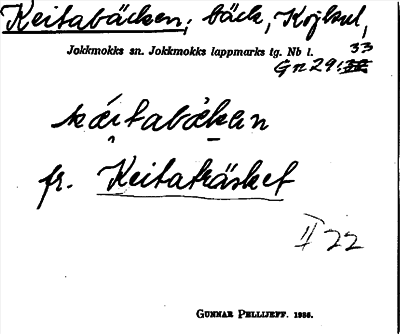 Keitabäcken; bäck, Kojkul,
Jokkmokks sn. Jokkmokks lappmarks tg. Nb l.
33
Gn 29:32
kæ̀i̯tabækən
fr. Keitaträsket
II 22
GUNNAR PELLIJEFF. 1956.